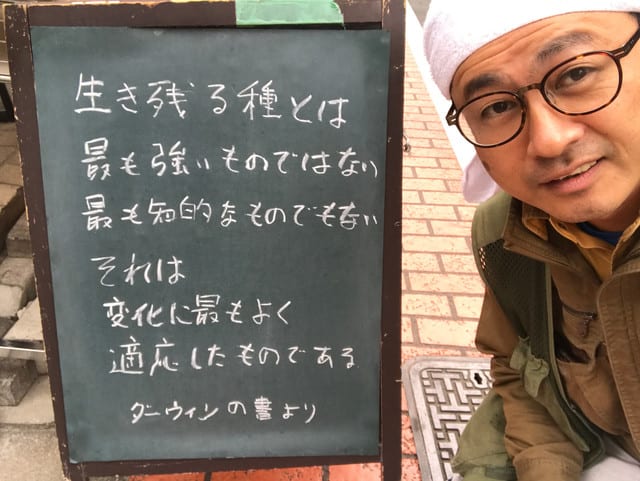 生き残る種とは
最も強いものではない
最も知的なものでもない
それは
変化に最もよく
適応したものである
ダーウィンの書より